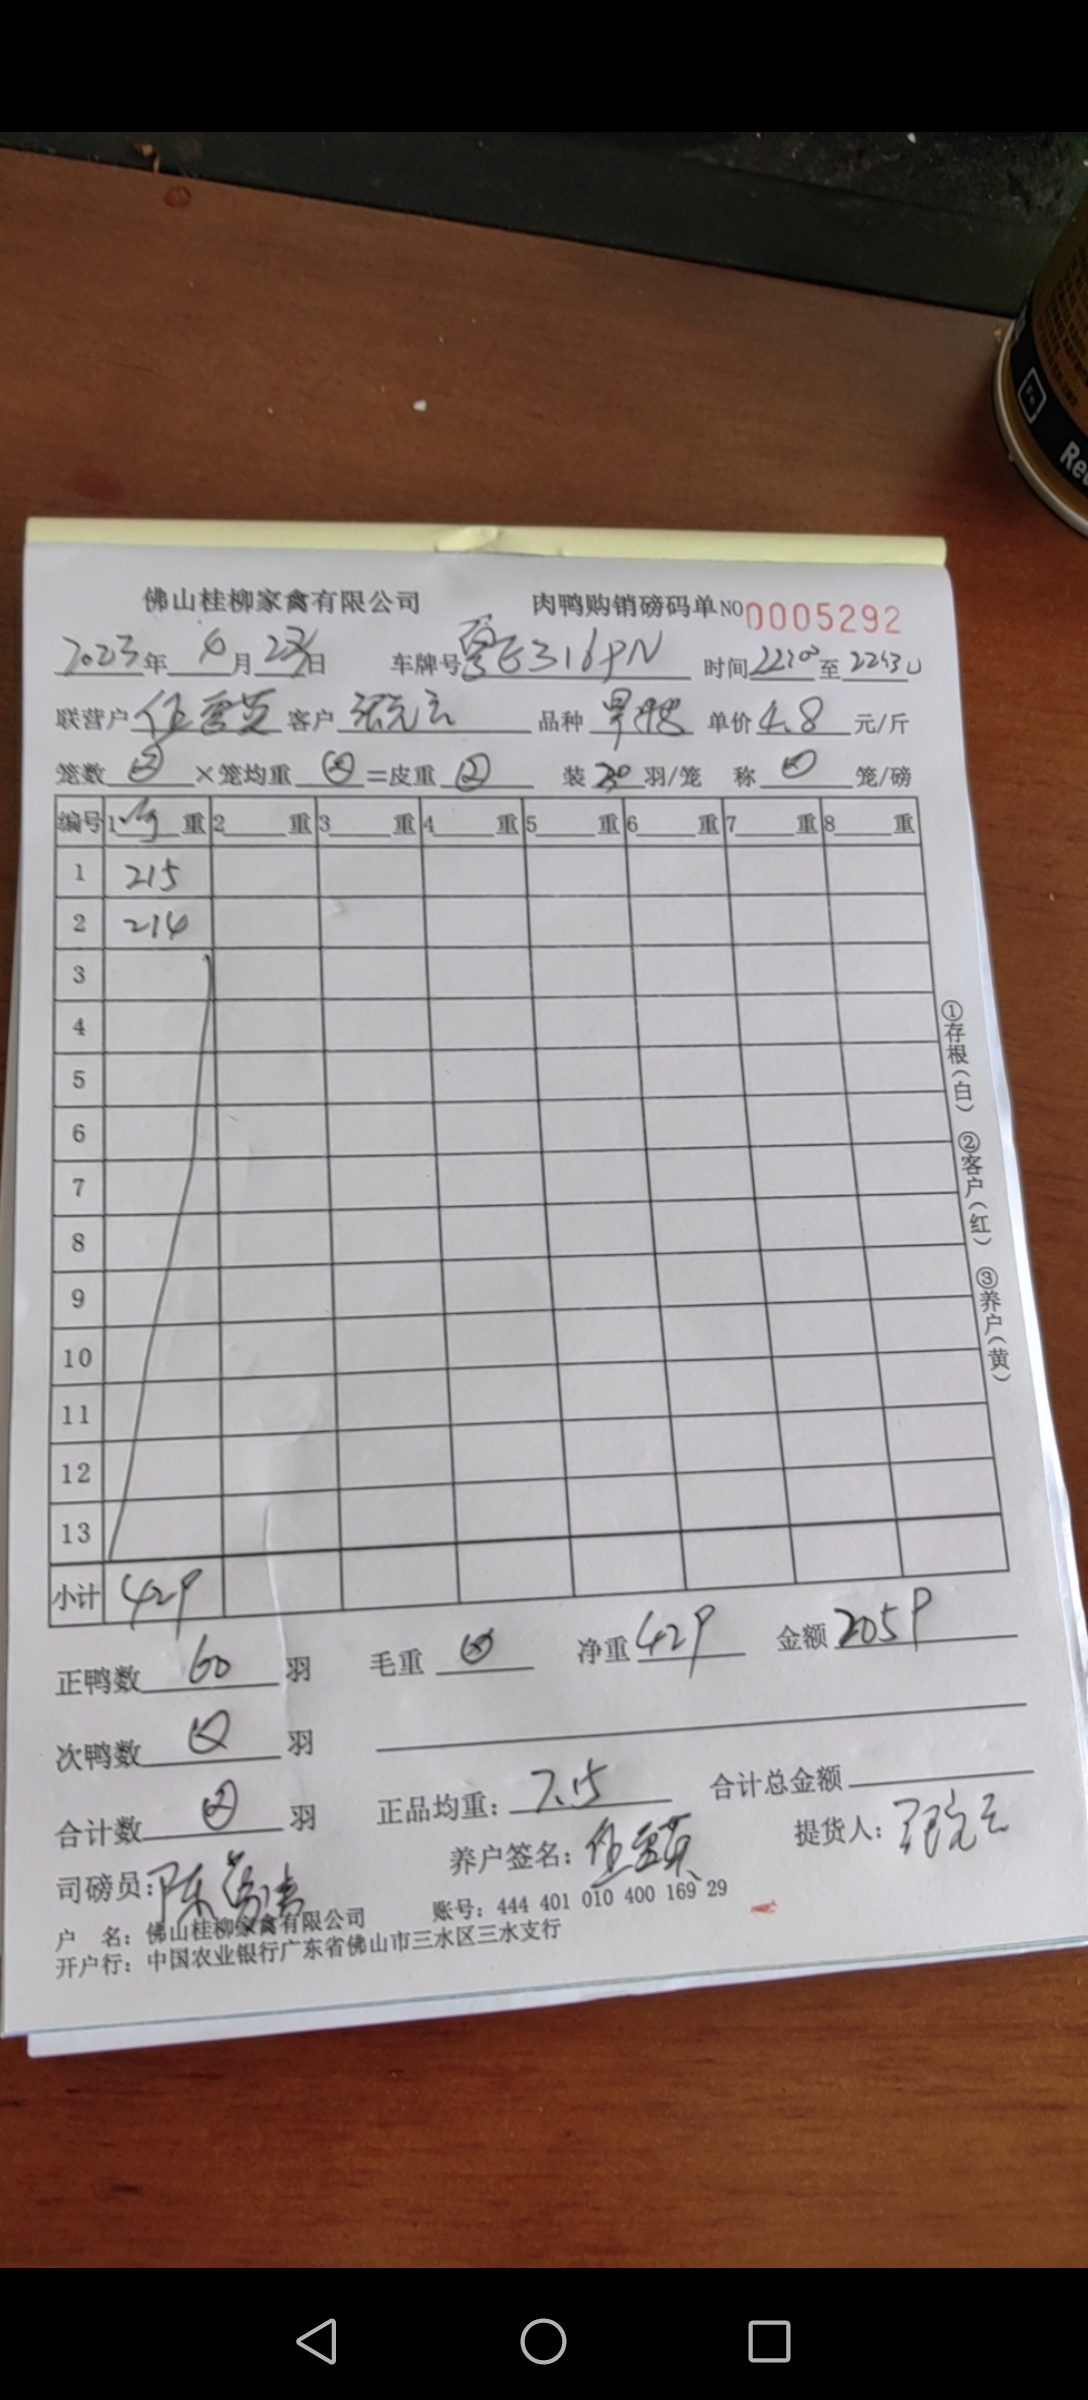 佛山桂柳家禽有限公司 肉鸭购销磅码单NO0005292
2023年 4月23日 车牌号粤E316PN 时间 至
联营户 客户张元云 品种 单价4.8元/斤
笼数 ×笼均重 =皮重 装30羽/笼 称 笼/磅
编号 1 重 2 重 3 重 4 重 5 重 6 重 7 重 8 重
1 215
2 214
3
4
5
6
7
8
9
10
11
12
13
小计 429
正鸭数 60 羽 毛重 净重 429 金额 2059
次鸭数 羽
合计数 羽 正品均重: 7.15 合计总金额
司磅员: 陈 养户签名: 提货人: 张元云
户 名: 佛山桂柳家禽有限公司 账号: 444 401 010 400 169 29
开户行: 中国农业银行广东省佛山市三水区三水支行
①存根(白) ②客户(红) ③养户(黄)
Re